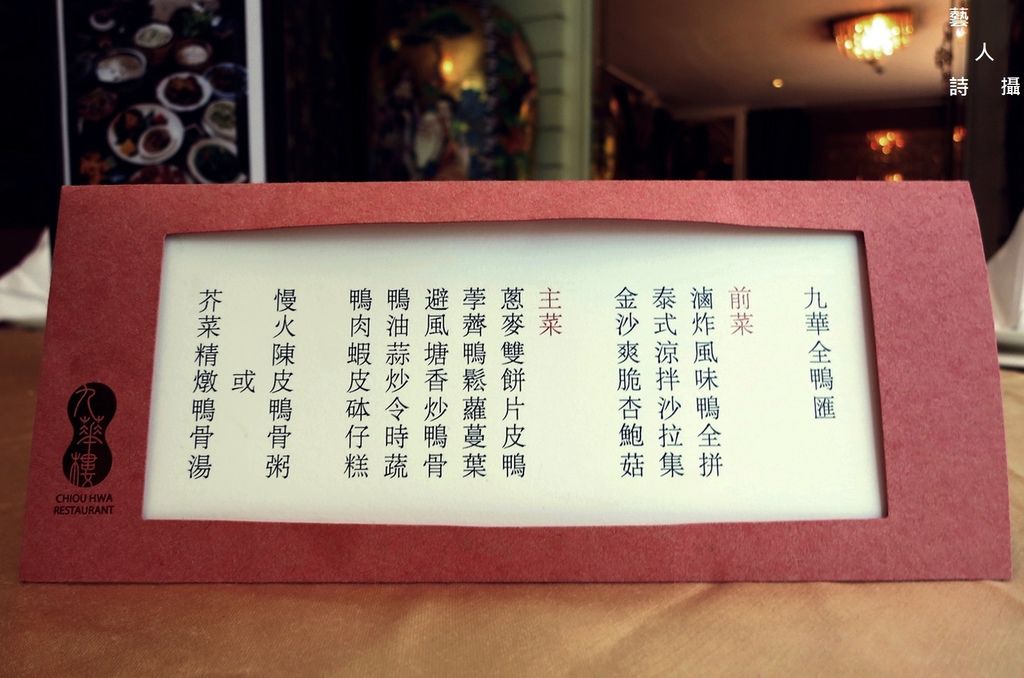 九華全鴨匯
前菜
滷炸風味鴨全拼
泰式涼拌沙拉集
金沙爽脆杏鮑菇
主菜
蔥麥雙餅片皮鴨
荸薺鴨鬆蘿蔓葉
避風塘香炒鴨骨
鴨油蒜炒令時蔬
鴨肉蝦皮砵仔糕
慢火陳皮鴨骨粥
或
芥菜精燉鴨骨湯
九華樓
CHIOU HWA
RESTAURANT
藝人詩攝